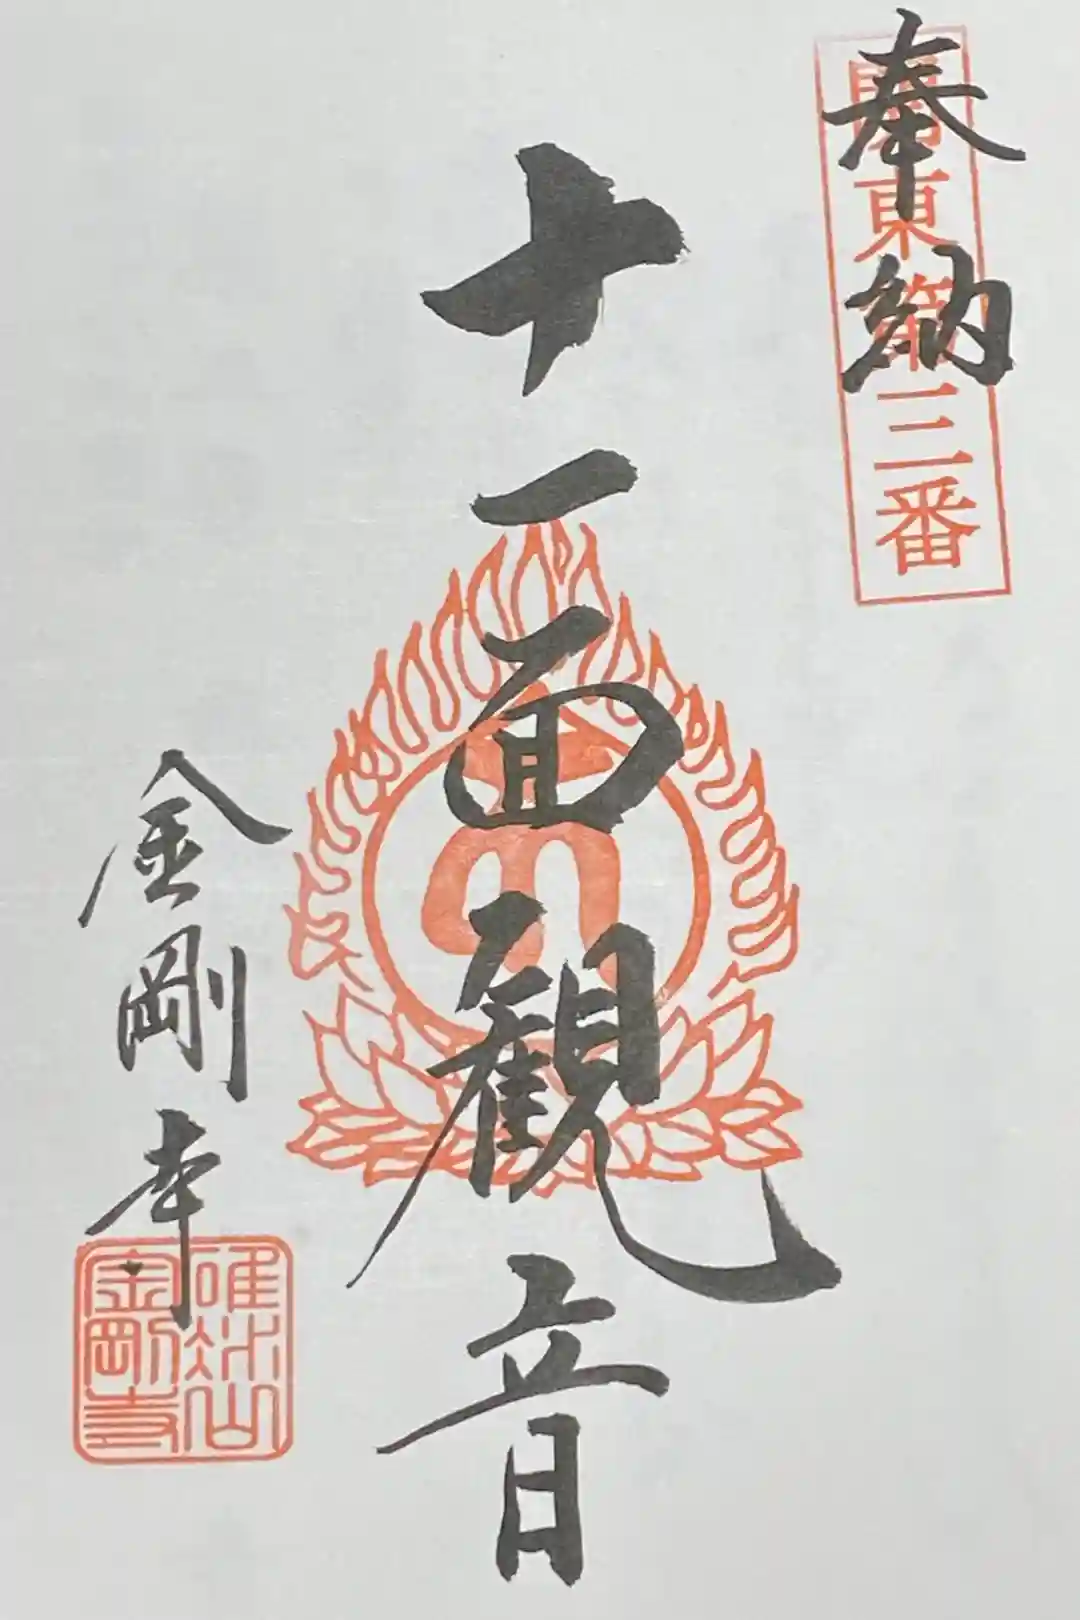 奉納
關東第三番
十一面観音
金剛寺
雄琴山
金剛寺